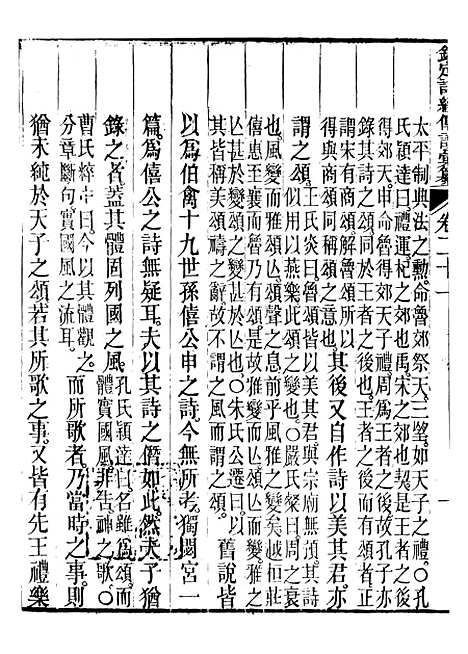 欽定詩經傳說彙纂 卷二十一 一
太平制典法之勳命魯郊祭天三望如天子之禮○孔
氏穎達曰禮運杞之郊也禹宋之郊也契是王者之後
得郊天申命魯得郊天子禮周爲王者之後故孔子
錄其詩之頌同於王者之後也王者之後而有頌者正
謂宋有商頌解魯頌所以
得與商頌同稱頌之意也
其後又自作詩以美其君亦
謂之頌
王氏炎曰魯頌皆以美其君與宗廟無預其
似用以燕樂此頌之變也○嚴氏粲曰周之衰
也風變而雅頌之息前乎風雅之變矣越恒莊
僖惠至襄而魯乃有頌焉雅變而頌亡而變雅之
亡甚於變頌之變甚於亡也○朱氏公遷曰
其皆稱美頌禱之辭故不謂之風而謂之頌
舊說皆
以爲伯禽十九世孫僖公申之詩今無所考獨閟宮一
篇爲僖公之詩無疑耳夫以其詩之僭如此然夫子猶
錄之者蓋其體固列國之風
孔氏穎達曰名雖爲頌而
體實國風非告神之歌○
曹氏粹中曰今以其體觀之
分章斷句實國風之流耳
而所歌者乃當時之事則
猶未純於天子之頌若其所歌之事又皆有先王禮樂